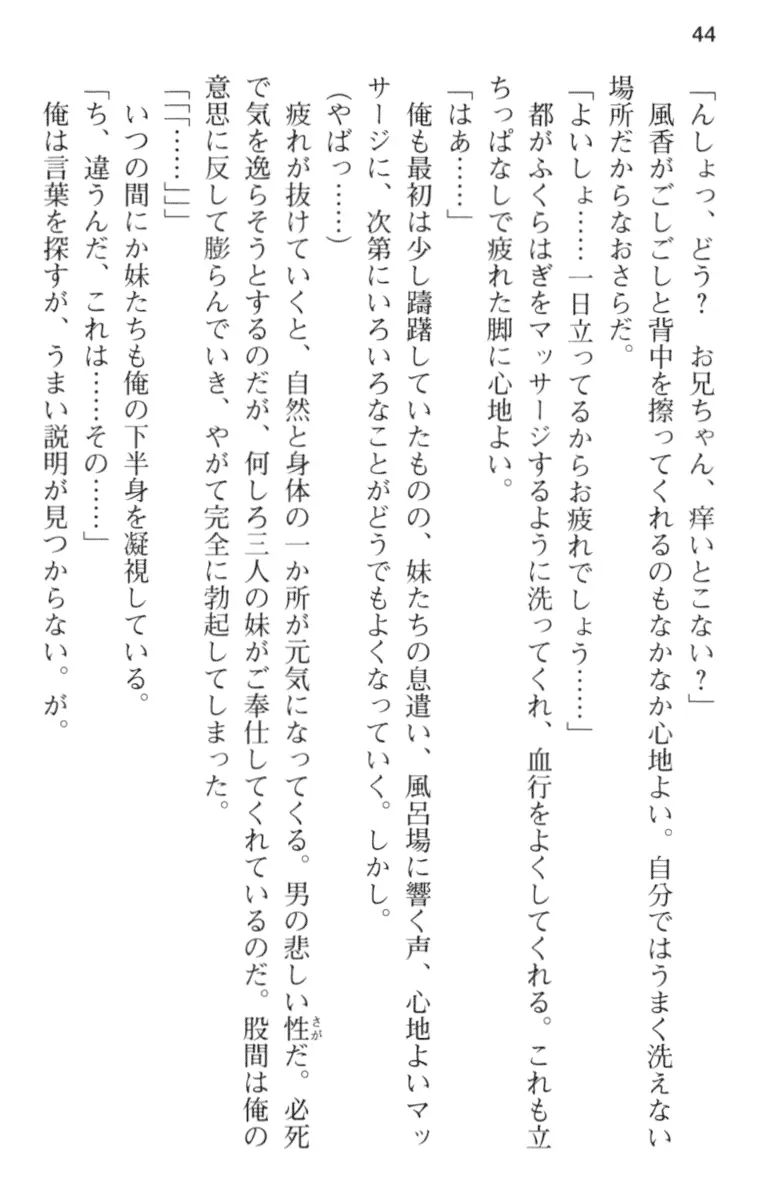 44
「んしょっ、どう？　お兄ちゃん、痒いとこない？」
　風香がごしごしと背中を擦ってくれるのもなかなか心地よい。自分ではうまく洗えない
場所だからなおさらだ。
「よいしょ……一日立ってるからお疲れでしょう……」
　都がふくらはぎをマッサージするように洗ってくれ、血行をよくしてくれる。これも立
ちっぱなしで疲れた脚に心地よい。
「はぁ……」
　俺も最初は少し躊躇していたものの、妹たちの息遣い、風呂場に響く声、心地よいマッ
サージに、次第にいろいろなことがどうでもよくなっていく。しかし。
（やばっ……）
　疲れが抜けていくと、自然と身体の一か所が元気になってくる。男の悲しい性さがだ。必死
で気を逸らそうとするのだが、何しろ三人の妹がご奉仕してくれているのだ。股間は俺の
意思に反して膨らんでいき、やがて完全に勃起してしまった。
「「「……」」」
　いつの間にか妹たちも俺の下半身を凝視している。
「ち、違うんだ、これは……その……」
　俺は言葉を探すが、うまい説明が見つからない。が。